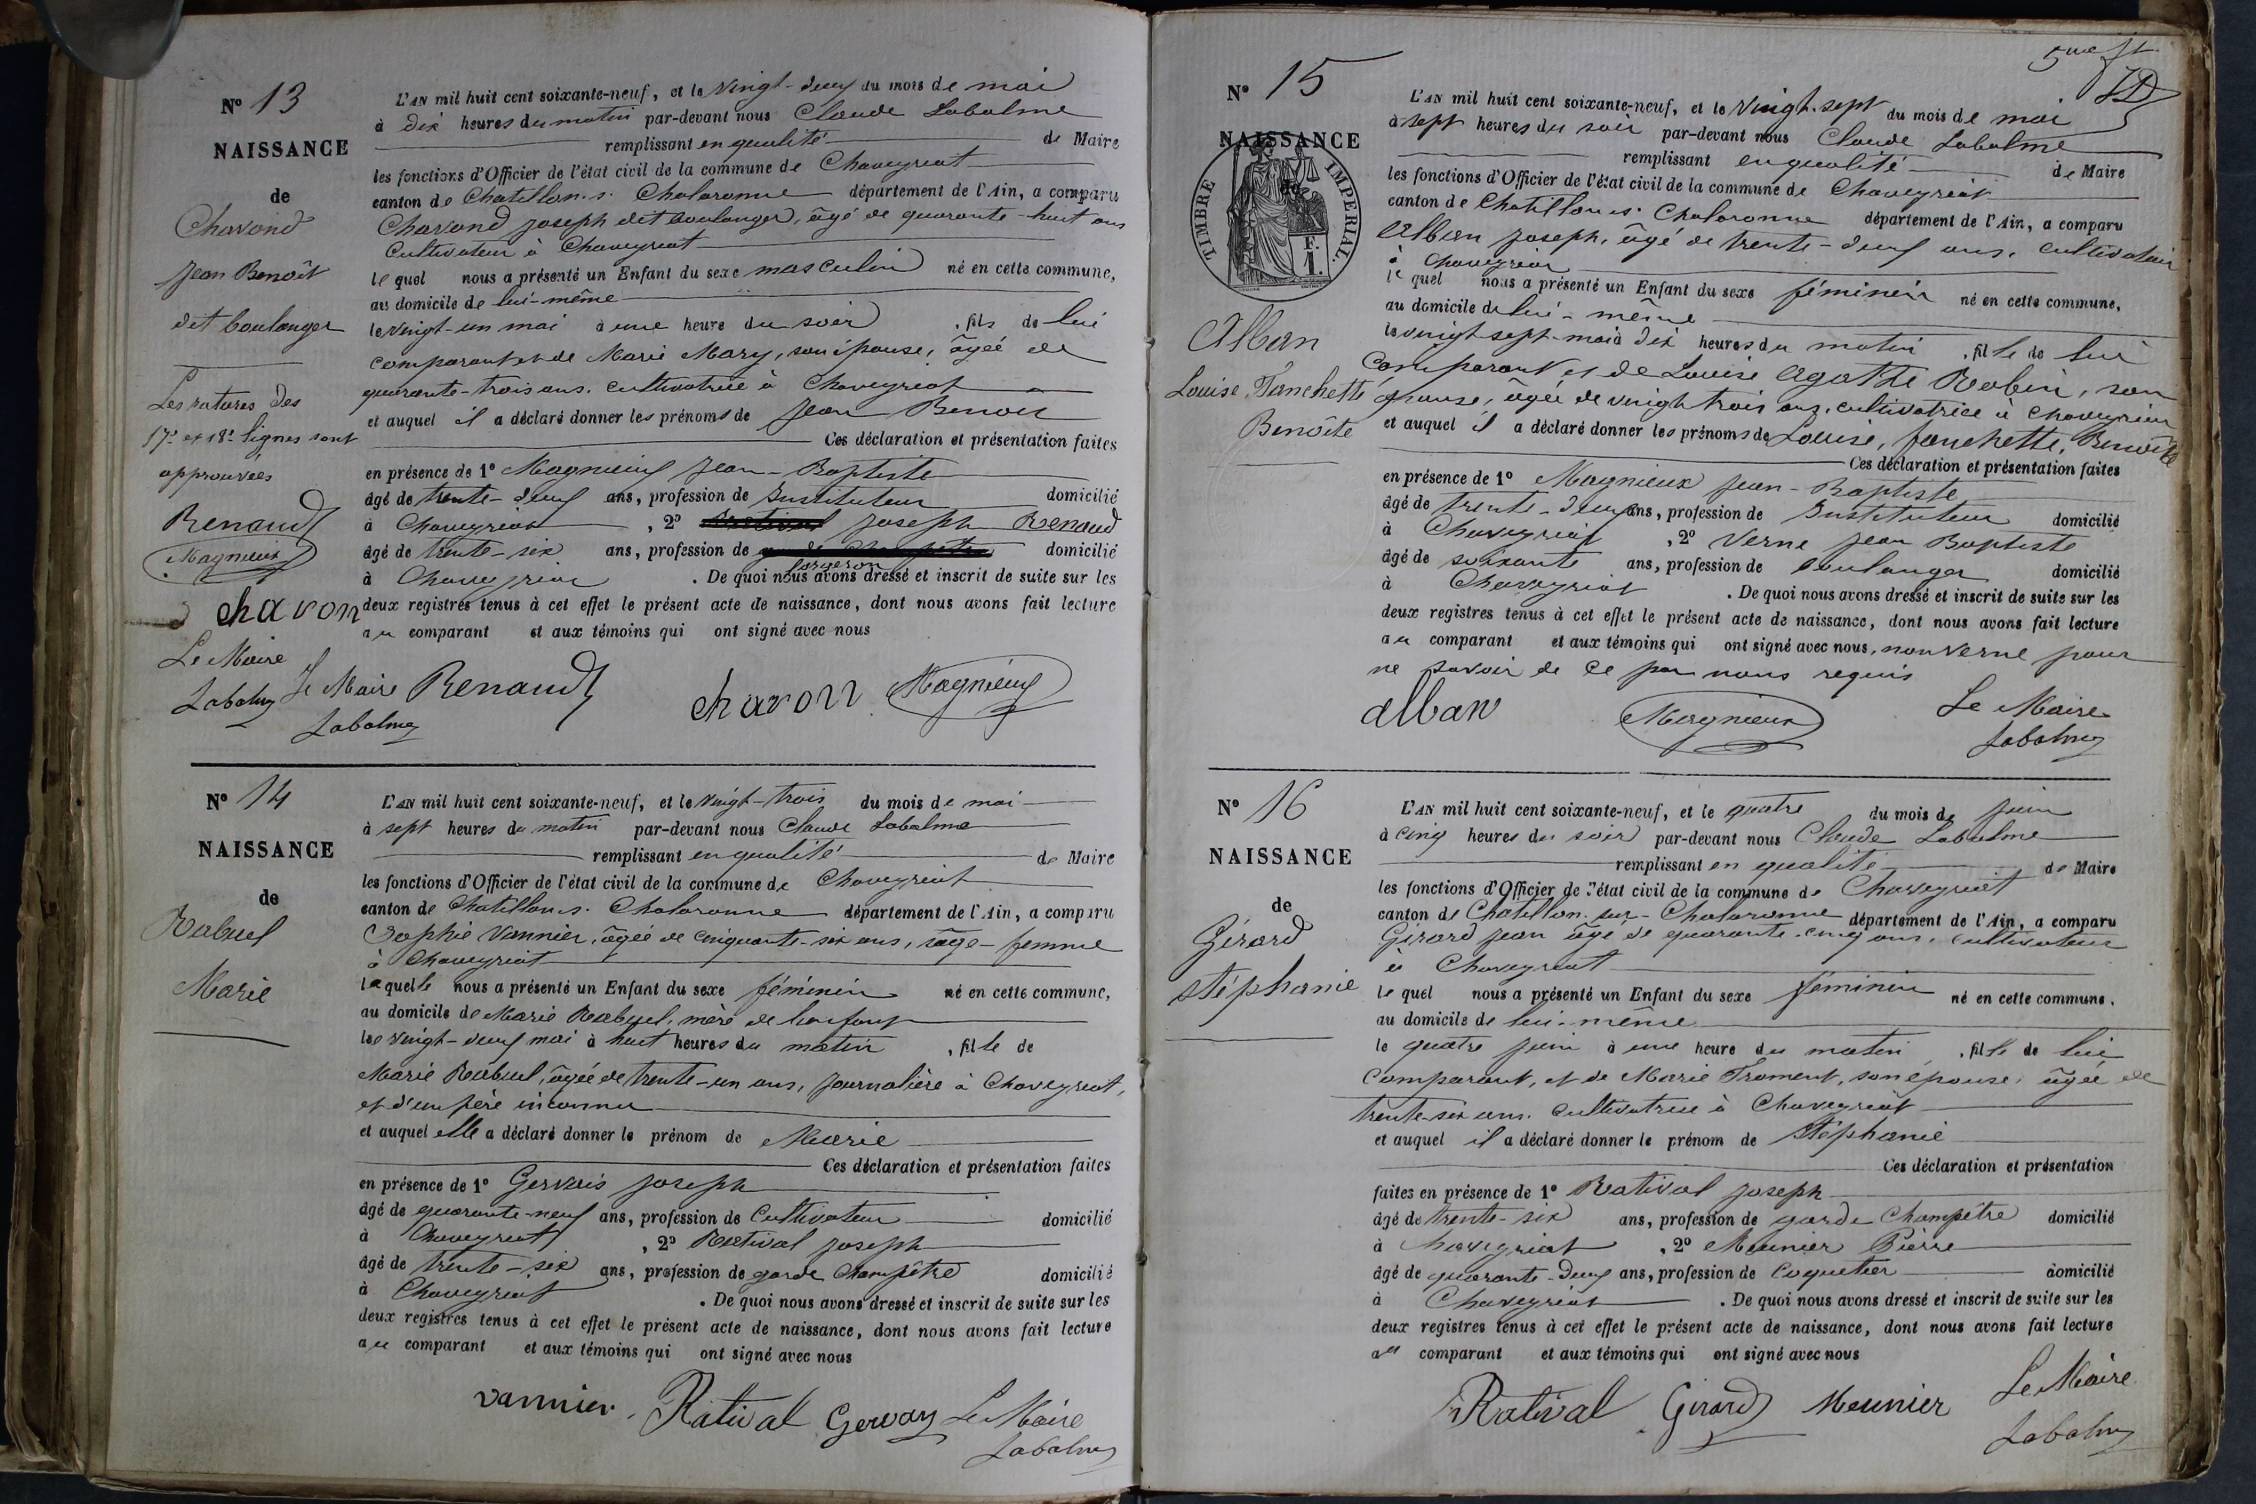 N° 13
NAISSANCE
de
Chavond
Jean Benoît
dit boulanger
Les ratures des
17e et 18e lignes sont
approuvées
Renaud
Magnieux
chavon
Le Maire
Labalme
L'AN mil huit cent soixante-neuf, et le vingt-deux du mois de mai
à dix heures du matin par-devant nous Claude Labalme
remplissant en qualité de Maire
les fonctions d'Officier de l'état civil de la commune de Chaveyriat
canton de Chatillon s. Chalaronne département de l'Ain, a comparu
Chavond joseph dit boulanger, âgé de quarante-huit ans
Cultivateur à Chaveyriat
le quel nous a présenté un Enfant du sexe masculin né en cette commune,
au domicile de lui-même
le vingt-un mai à une heure du soir, fils de lui
comparant et de Marie Mary, son épouse, âgée de
quarante-trois ans, cultivatrice à Chaveyriat
et auquel il a déclaré donner les prénoms de Jean Benoît
Ces déclaration et présentation faites
en présence de 1° Magnieux Jean-Baptiste
âgé de trente-deux ans, profession de Instituteur domicilié
à Chaveyriat, 2° Ratival joseph Renaud
âgé de trente-six ans, profession de garde champêtre domicilié
forgeron
à Chaveyriat. De quoi nous avons dressé et inscrit de suite sur les
deux registres tenus à cet effet le présent acte de naissance, dont nous avons fait lecture
au comparant et aux témoins qui ont signé avec nous
Le Maire Renaud chavon Magnieux
Labalme
N° 14
NAISSANCE
de
Rabuel
Marie
L'AN mil huit cent soixante-neuf, et le vingt-trois du mois de mai
à sept heures du matin par-devant nous Claude Labalme
remplissant en qualité de Maire
les fonctions d'Officier de l'état civil de la commune de Chaveyriat
canton de Chatillon s. Chalaronne département de l'Ain, a comparu
Sophie Vannier, âgée de cinquante-six ans, sage-femme
à Chaveyriat
laquelle nous a présenté un Enfant du sexe féminin né en cette commune,
au domicile de Marie Rabuel, mère de l'enfant
le vingt-deux mai à huit heures du matin, fille de
Marie Rabuel, âgée de trente-un ans, journalière à Chaveyriat,
et d'un père inconnu
et auquel elle a déclaré donner le prénom de Marie
Ces déclaration et présentation faites
en présence de 1° Gervais joseph
âgé de quarante-neuf ans, profession de Cultivateur domicilié
à Chaveyriat, 2° Ratival joseph
âgé de trente-six ans, profession de garde champêtre domicilié
à Chaveyriat. De quoi nous avons dressé et inscrit de suite sur les
deux registres tenus à cet effet le présent acte de naissance, dont nous avons fait lecture
au comparant et aux témoins qui ont signé avec nous
vannier Ratival Gervay Le Maire
Labalme
5me ft
N° 15
NAISSANCE
de
TIMBRE IMPERIAL.
F.
1.
Alban
Louise, Fanchette
Benoîte
L'AN mil huit cent soixante-neuf, et le vingt-sept du mois de mai
à sept heures du soir par-devant nous Claude Labalme
remplissant en qualité de Maire
les fonctions d'Officier de l'état civil de la commune de Chaveyriat
canton de Chatillon s. Chalaronne département de l'Ain, a comparu
Alban joseph, âgé de trente-deux ans, cultivateur
à Chaveyriat
le quel nous a présenté un Enfant du sexe féminin né en cette commune,
au domicile de lui-même
le vingt-sept mai à dix heures du matin, fille de lui
comparant et de Louise Agathe Robin, son
épouse, âgée de vingt trois ans, cultivatrice à Chaveyriat
et auquel il a déclaré donner les prénoms de Louise, fanchette, Benoîte
Ces déclaration et présentation faites
en présence de 1° Magnieux Jean-Baptiste
âgé de trente-deux ans, profession de Instituteur domicilié
à Chaveyriat, 2° Verne Jean Baptiste
âgé de soixante ans, profession de boulanger domicilié
à Chaveyriat. De quoi nous avons dressé et inscrit de suite sur les
deux registres tenus à cet effet le présent acte de naissance, dont nous avons fait lecture
au comparant et aux témoins qui ont signé avec nous, non Verne pour
ne savoir de ce par nous requis
alban Magnieux Le Maire
Labalme
N° 16
NAISSANCE
de
Girard
Stéphanie
L'AN mil huit cent soixante-neuf, et le quatre du mois de juin
à cinq heures du soir par-devant nous Claude Labalme
remplissant en qualité de Maire
les fonctions d'Officier de l'état civil de la commune de Chaveyriat
canton de Chatillon-sur-Chalaronne département de l'Ain, a comparu
Girard jean âgé de quarante-cinq ans, cultivateur
à Chaveyriat
le quel nous a présenté un Enfant du sexe féminin né en cette commune,
au domicile de lui-même
le quatre juin à une heure du matin, fille de lui
comparant, et de Marie Froment, son épouse, âgée de
trente-six ans, cultivatrice à Chaveyriat
et auquel il a déclaré donner le prénom de Stéphanie
Ces déclaration et présentation
faites en présence de 1° Ratival joseph
âgé de trente-six ans, profession de garde champêtre domicilié
à Chaveyriat, 2° Meunier Pierre
âgé de quarante-deux ans, profession de Coquetier domicilié
à Chaveyriat. De quoi nous avons dressé et inscrit de suite sur les
deux registres tenus à cet effet le présent acte de naissance, dont nous avons fait lecture
au comparant et aux témoins qui ont signé avec nous
Ratival Girard Meunier Le Maire
Labalme